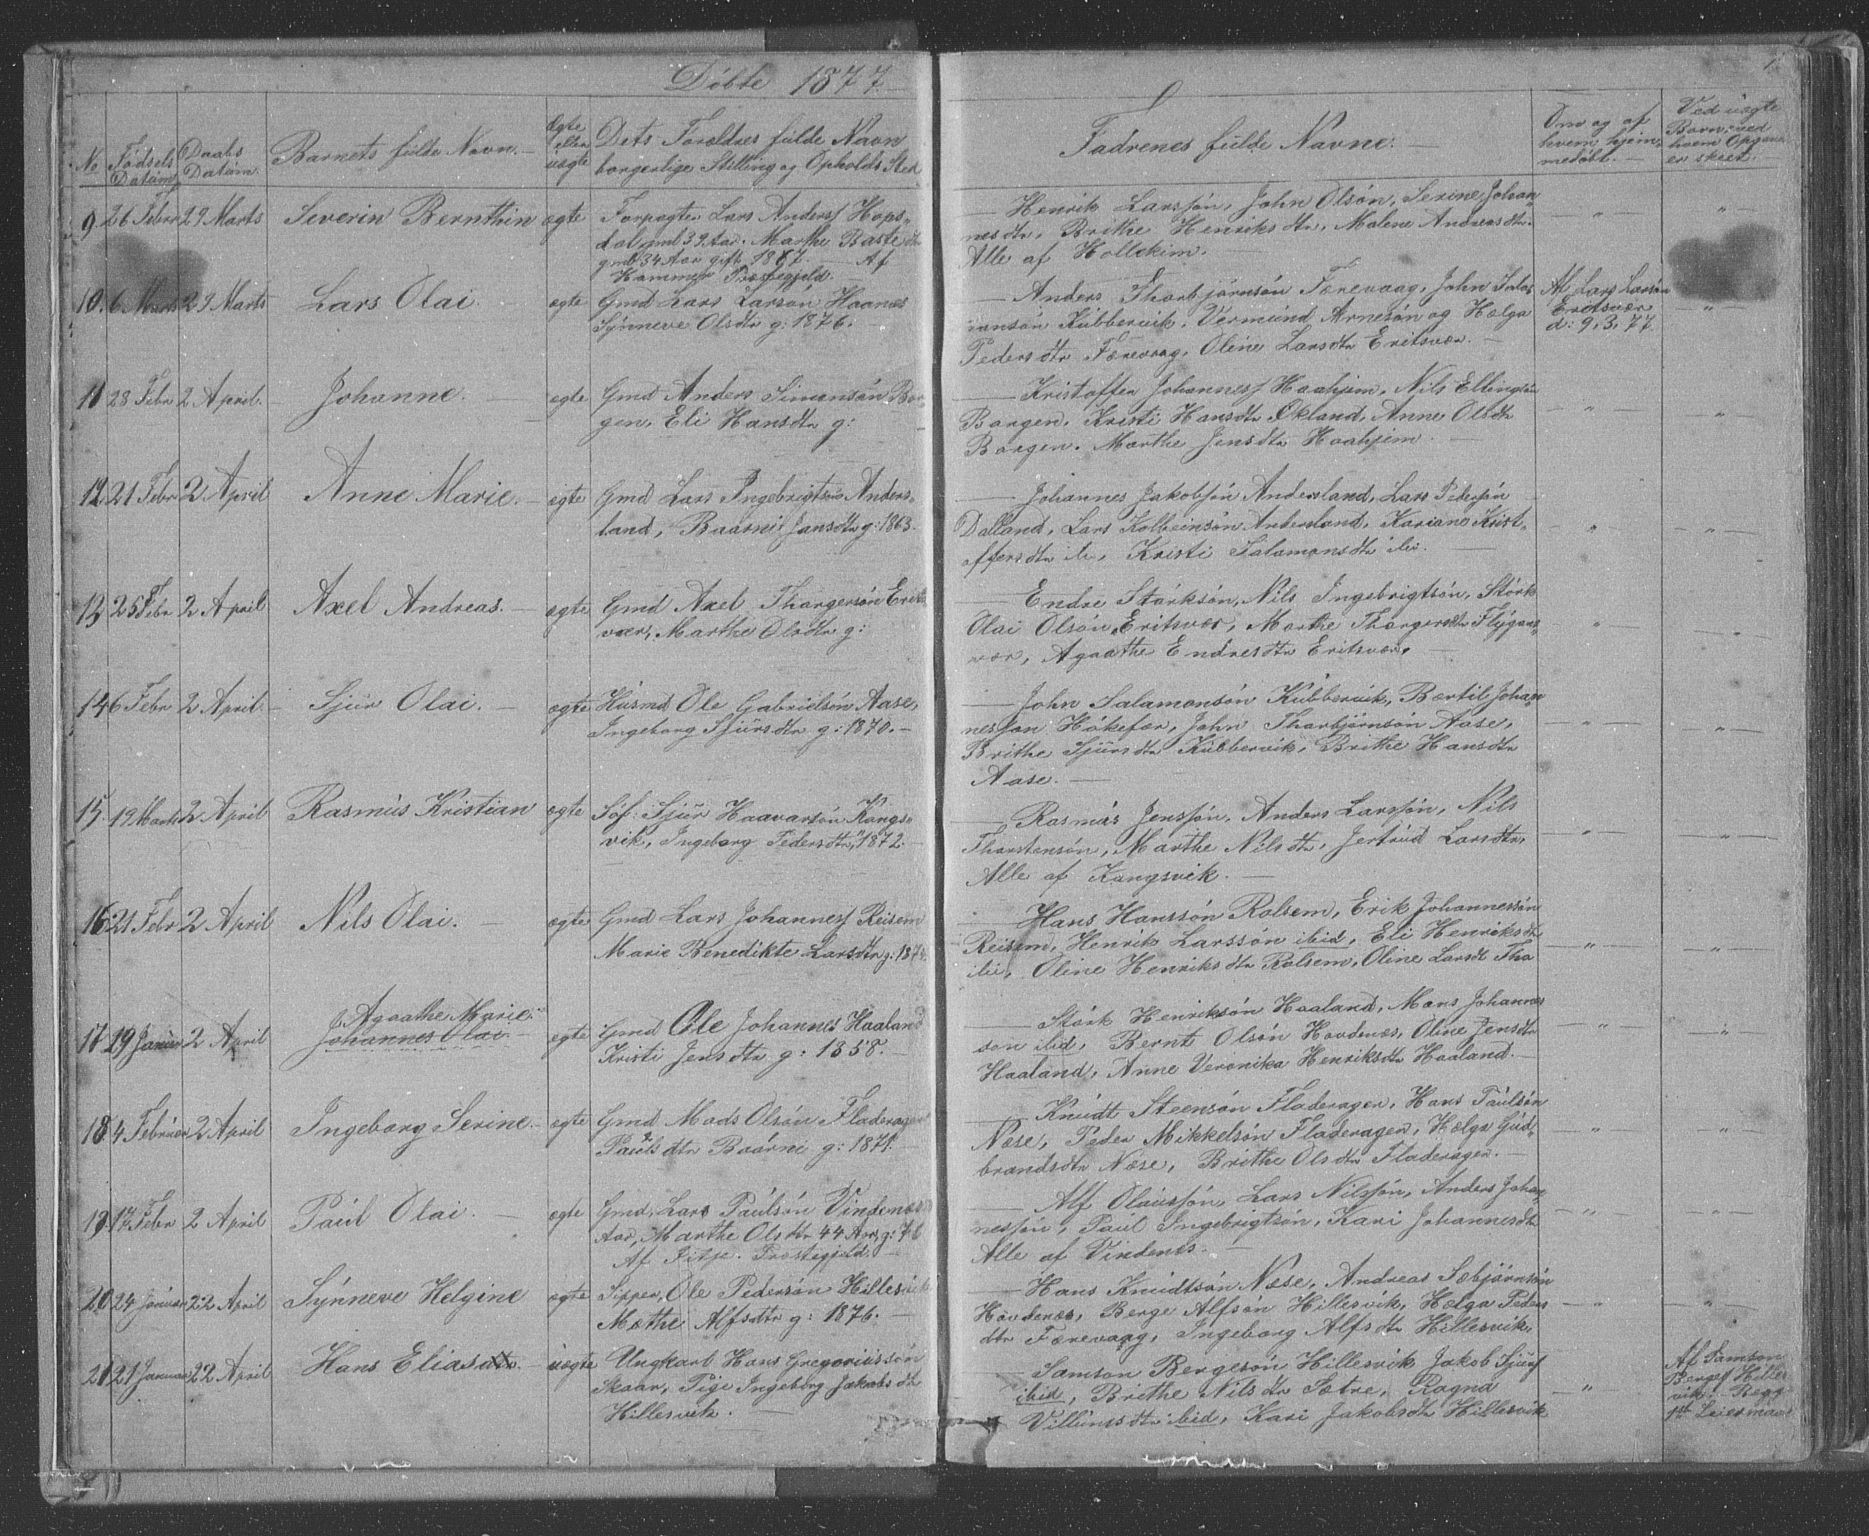 Döbte 1877
No
Födsels Datüm
Daabs Datüm
Barnets fülde Navn.
Ægte eller üægte
Dets Forældres fülde Navn borgerlige Stilling og Opholds Sted
Fadrenes fülde Navne.
Om og af hvem hjemmedöbt.
Ved üægte Börn, ved hvem Opgave er skeet.
9 26 Febr 29 Marts Severin Bernthin ægte Forpagter Lars Anderss Hops-
dal gml 39 Aar. Marthe Baste
gml 34 Aar gift 1867. Af
Hammer Præstegjeld.
Henrik Larssön, John Olsön, Serine Johan
nesdtr. Brithe Henriksdtr, Malene Andreasdtr.
Alle af Hollekim.
10. 6 Marts 29 Marts Lars Olai. ægte Gmd Lars Larsön Haanes
Synneve Olsdtr g: 1876.
Anders Thorbjörnsön Færevaag, John Salo-
monsön Kübbervik, Vermünd Arnesön og Hælga
Pedersdtr Færevaag, Oline Larsdtr Eritsvær.
Af Lars Larsön
Eritsvær
d: 9. 3. 77.
11 28 Febr 2 April. Johanne. ægte Gmd Anders Simonsön Bor
gen, Eli Hansdtr g:
Kristoffer Johanness Haahjem, Nils Ellingsön
Borgen. Kristi Hansdtr Økland, Anne Olsdtr
Borgen. Marthe Jensdtr Haahjem.
12. 21 Febr 2 April Anne Marie. ægte Gmd Lars Ingebrigtsön Anders-
land, Baarni Jansdtr g: 1863.
Johannes Jakobsön Andersland, Lars Pedersön
Dalland, Lars Kolbeinsön Andersland, Kariane Krist-
offersdtr ib., Kristi Salamonsdtr ibi.
13 25 Febr 2 April Axel Andreas. ægte Gmd Axel Thorgersön Erits
vær, Marthe Olsdtr g:
Endre Störksön, Nils Ingebrigtsön, Störk
Olai Olsön Eritsvær, Marthe Thorgersdtr Flygans-
vær, Agaathe Endresdtr Eritsvær.
14 6 Febr 2 April. Sjür Olai. ægte Hüsmd Ole Gabrielsön Aase,
Ingeborg Sjürsdtr g: 1870.
John Salamonsön Kübbervik, Bærtil Johan
nessön Hökefær, John Thorbjörnsön Aase,
Brithe Sjürsdtr Kübbervik, Brithe Hansdtr
Aase.
15. 19 Marts 2 April Rasmüs Kristian ægte Söf: Sjür Haavarsön Kongs-
vik, Ingeborg Pedersdtr, " 1872.
Rasmüs Jenssön, Anders Larssön, Nils
Thorstensön, Marthe Nilsdtr, Jertrüd Larsdtr,
Alle af Kongsvik.
16. 21 Febr 2 April Nils Olai. ægte Gmd Lars Johanness Reisem
Marie Benedikte Larsdtr g: 187
Hans Hanssön Rolsem, Erik Johannessön
Reisem, Henrik Larssön ibid, Eli Henriksdtr
ibi, Oline Henriksdtr Rolsem, Oline Larsdt
17 19 Janüar 2 April Agaathe Marie.
Johannes Olai. ægte Gmd Ole Johannes Haaland
Kristi Jensdtr g: 1858.
Störk Henriksön Haaland, Mons Johannes
sön ibid, Bernt Olsön Hovdenæs, Oline Jensdtr
Haaland, Anne Veronika Henriksdtr Haaland.
18. 4 Febrüar 2 April Ingeborg Serine. ægte Gmd Mads Olsön Fladerager
Paülsdtr Baarni g: 1871.
Knüdt Steensön Fladerager, Hans Paülsön
Næse, Peder Mikkelsön Fladerager, Hælga Güd-
brandsdtr Næse, Brithe Olsdtr Fladerager.
19. 17. Febr 2 April Paül Olai. ægte Gmd. Lars Paülsön Vindenæs
Aar, Marthe Olsdtr 44 Aar g: 76
Af Fitje. Præstegjeld.
Alf Olaüssön, Lars Nilssön, Anders Johan
nessön, Paül Ingebrigtsön, Kari Johannesdtr
Alle af Vindenes.
20 24 Janüar 22 April Synneve Helgine ægte Sipper, Ole Pedersön Hillesvik
Mæthe Alfsdtr g: 1876.
Hans Knüdtsön Næse, Andreas Sæbjörnsön
Hovdenæs, Berge Alfsön Hillesvik, Hælga Peders
dtr Færevaag, Ingeborg Alfsdtr Hillesvik.
21 21 Janüar 22 April Hans Elias üægte Ungkarl Hans Gregoriüssön
Skaar, Pige Ingeborg Jakobsdtr
Hillesvik.
Samson Bergesön Hillesvik, Jakob Sjürs
ibid, Brithe Nilsdtr Sætre, Ragna
Villümsdtr ibid, Kari Jakobsdtr Hillesvik
Af Samson
Bergess Hille
vik. Begg
1st Leiermaal